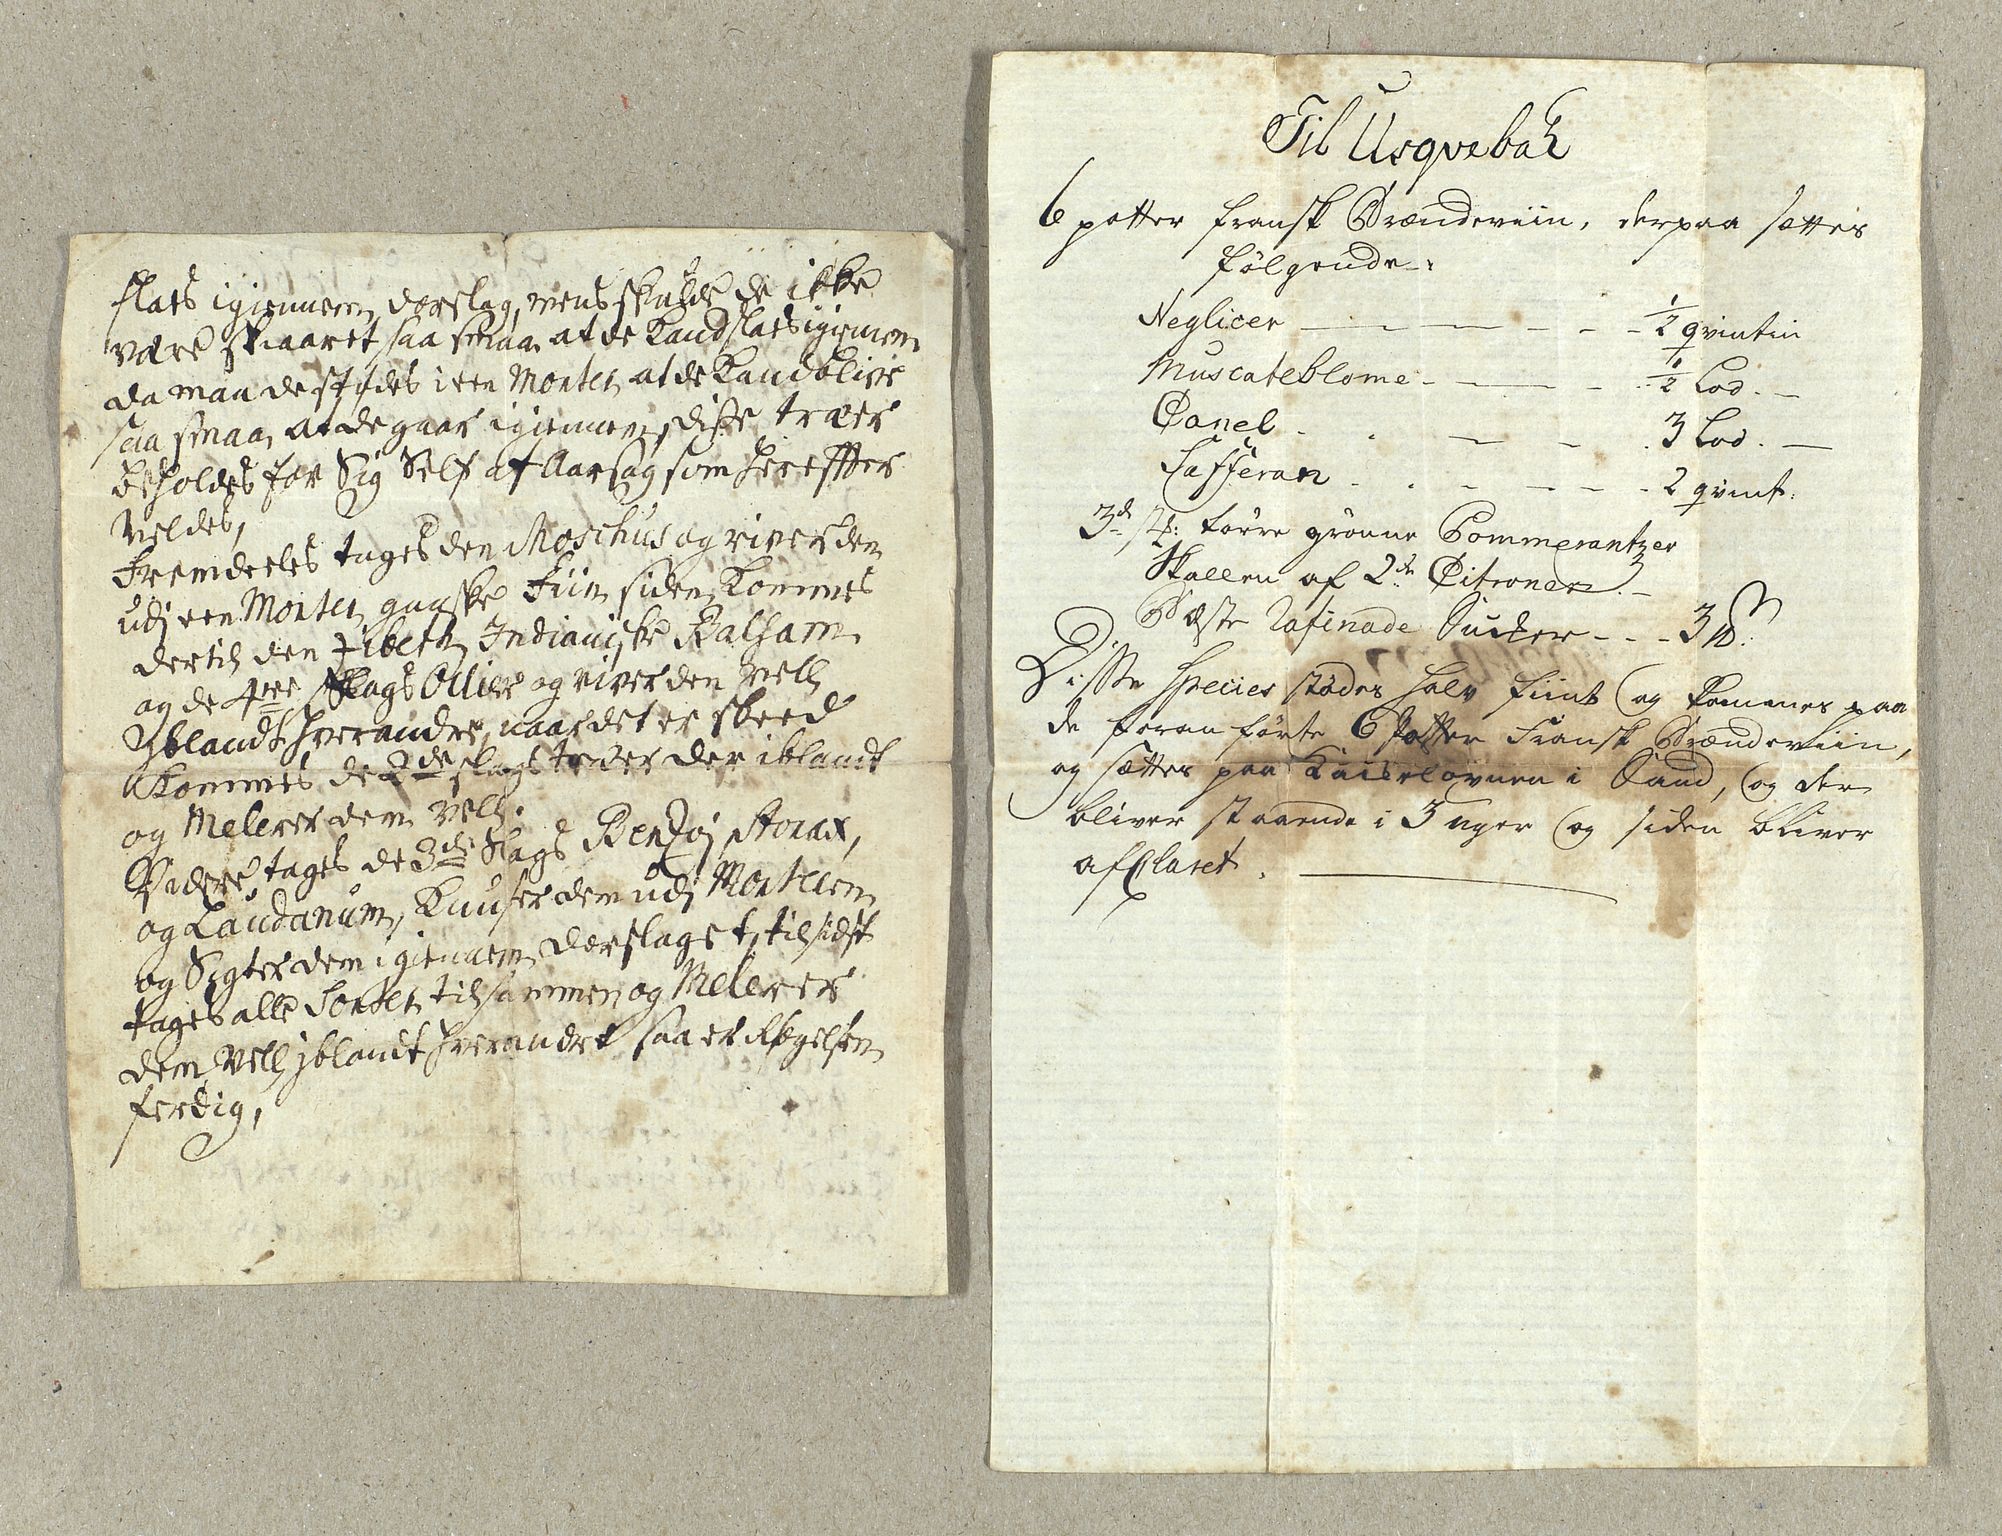 slaes igiennem dorslag, mens skulde de ikke
være skaaret saa smaa at de Kand slaes igiennem
da maa de stødes i een Morter at de Kand blive
saa smaa, at de gaar igiennem, diße træer
beholdes for Sig Self af Aarsag som hereffter
meldes,
Fremdeeles tages den Moschus og river den
udj een Morter gandske Fiin siden Kommes
dertil den Zibeth, Indianiske Balsam
og de 4re slags Ollier og river den vell
iblandt hverandre, naar det er skeed
Kommes de 2de slags træer der iblandt
og Melerer dem vell.
Videre tages de 3de slags Benzoj, Storax,
og Laudanum, Knuser dem udj Morteren
og Sigter dem igiennem Dørslaget, til sidst
tages alle Sorter tilsammen og Melerer
dem Vell jblandt hverandre saa er Røgelsen
ferdig,
Til Usqvebak
6 potter fransk Brændeviin, derpaa sættes
følgende:
Neglicer — — — - - - 1/2 qvintin
Muscateblome - — — - - 1/2 Lod. —
Canel - . — - . 3 Lod. —
Safferan . . - — - - 2 qvint:
3de st: tørre grønne Pommerantzer
Skallen af 2de Citroner. —
Beste Rafinade Sucker - - - 3 ℔.
Disse Species stødes halv fiint og kommes paa
de foranførte 6 Potter Fransk Brændeviin,
og sættes paa Kackelovnen i Sand, og der
bliver staaende i 3 uger og siden bliver
afClaret. —